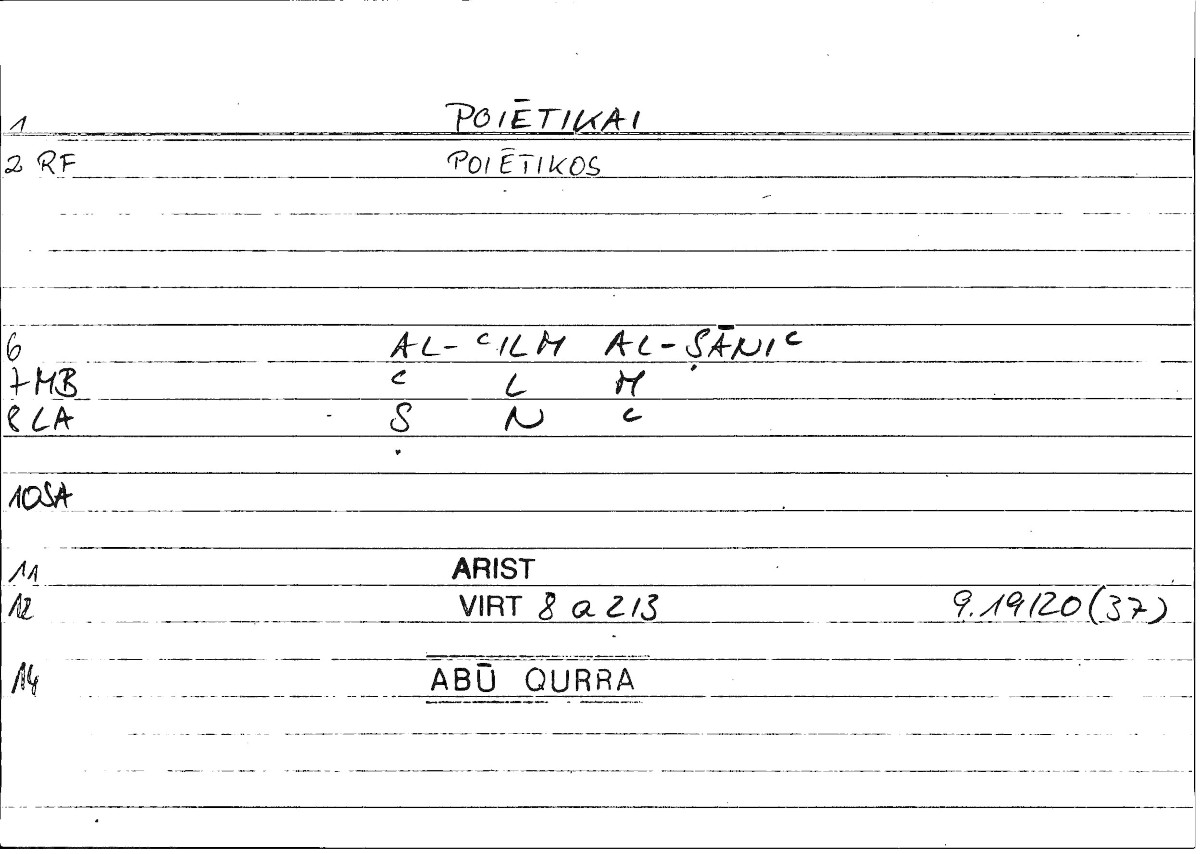 1 POIĒTIKAI
2 RF POIĒTIKOS
6 AL-ʿILM AL-ṢĀNIʿ
7 MB ʿ L M
8 LA Ṣ N ʿ
10 SA
11 ARIST
12 VIRT 8 a 2/3 9.19/20 (37)
14 ABŪ QURRA